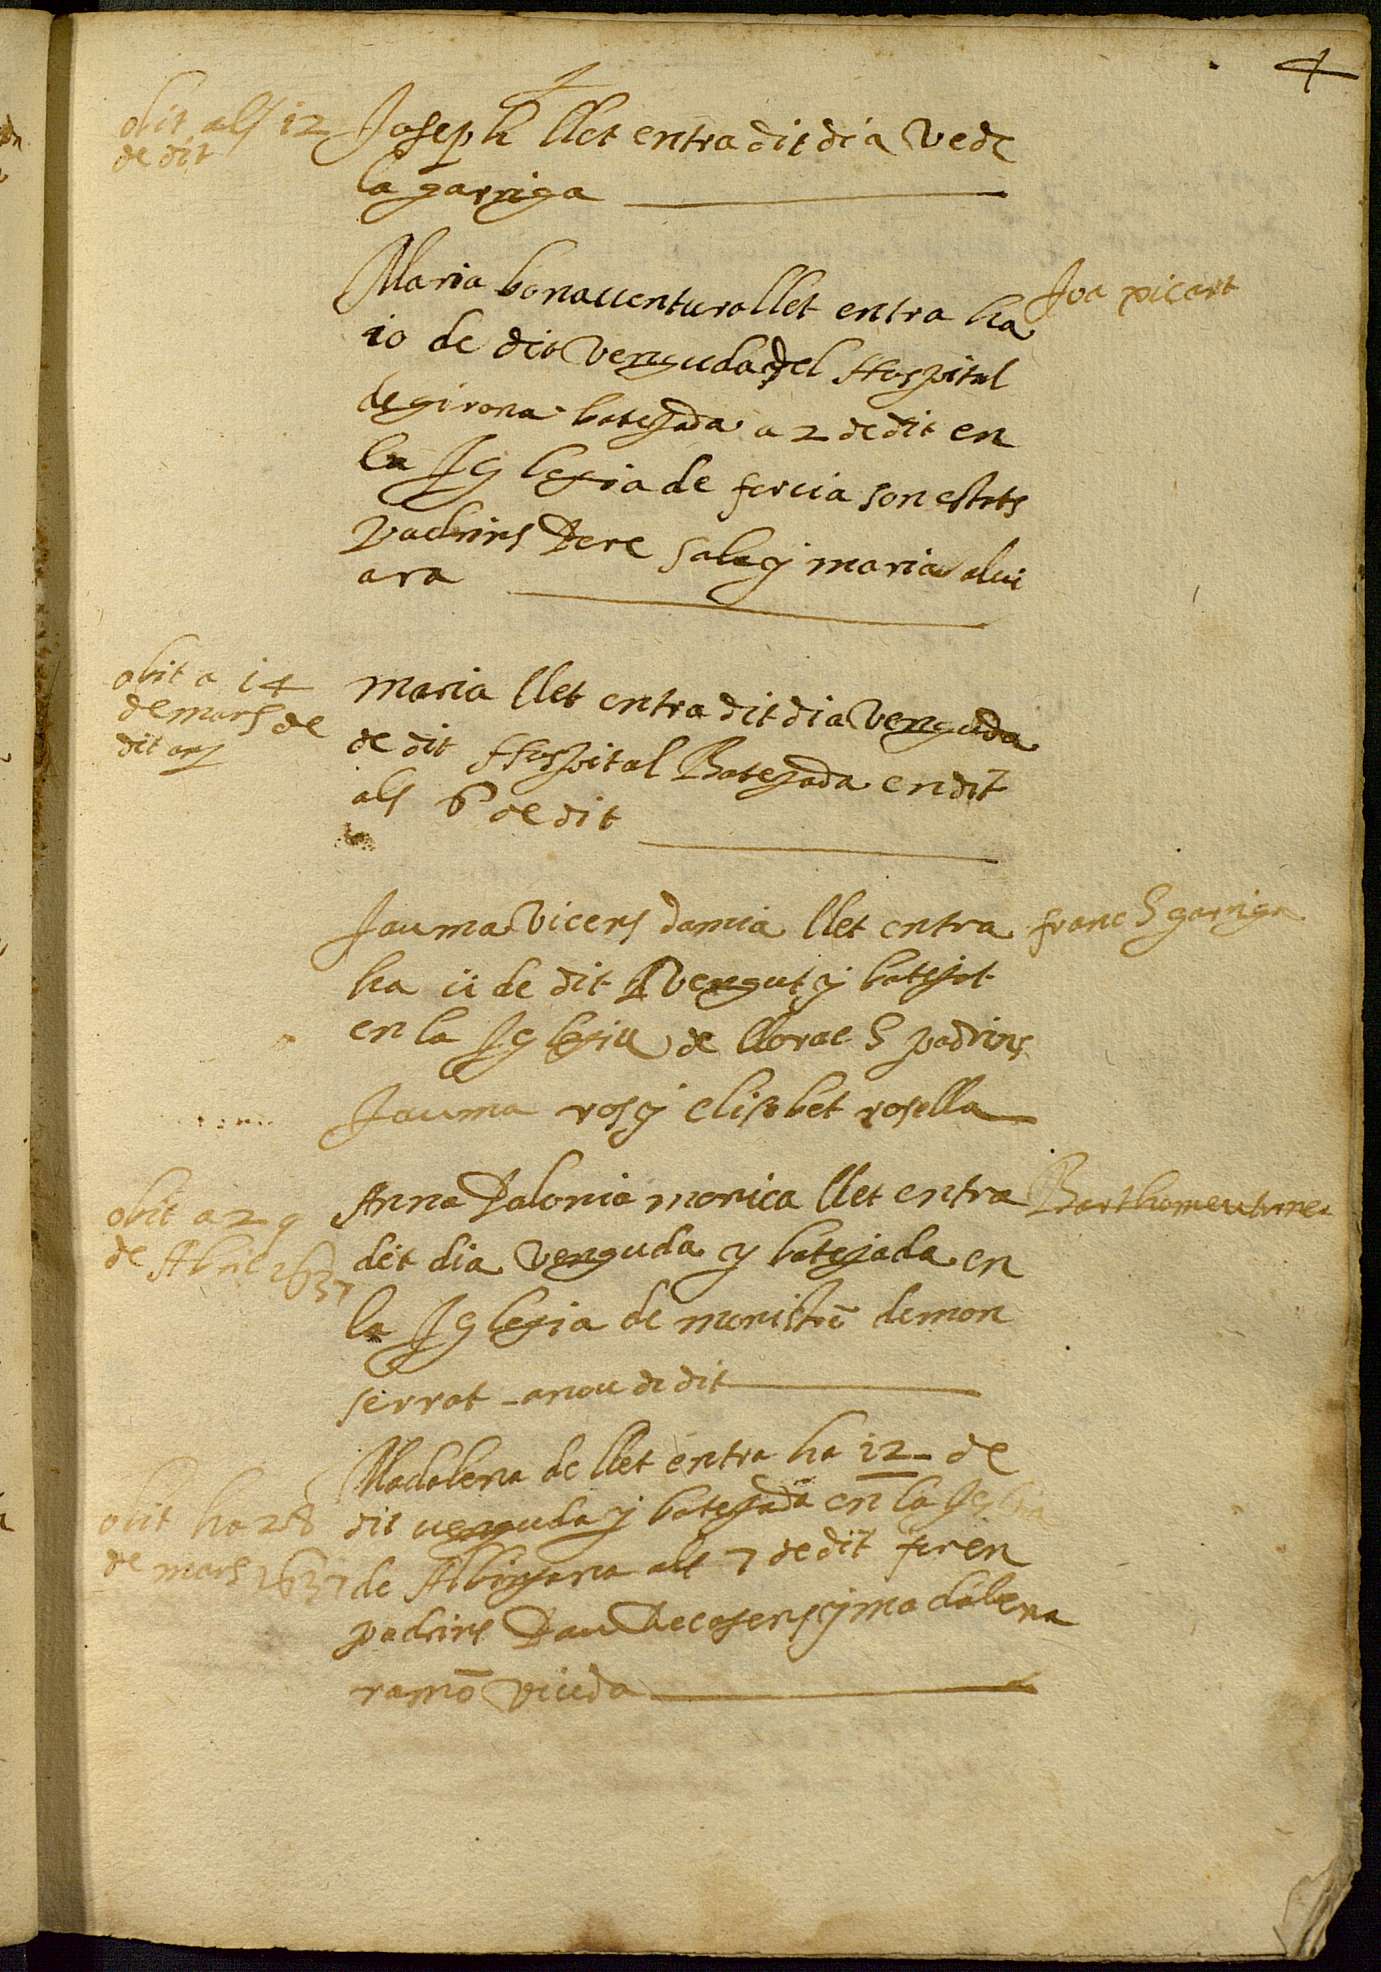 4
obit als 12
de dit
Joseph llet entra dit dia ve de
la garriga
Maria bonauentura llet entra ha
Joa picart
10 de dit venguda del Hospital
de girona batejada a 2 de dit en
la Iglesia de
son estats
padrins Pere sala y maria oliu
ara
obit a 14
de mars de
dit any
maria llet entra dit dia venguda
de dit Hospital Batejada en dit
als 6 de dit
Jauma Vicens damia llet entra
franc S garriga
ha 11 de dit vengut y batejat
en la Iglesia de llorac S padrins
Jauma ros y elisabet rosella
obit a 29
de Abril 1637
Anna Polonia monica llet entra
Barthomeu
dit dia venguda y batejada en
la Iglesia de monistrē de mon
serrat a nou de dit
obit ha 28
de mars 1637
Madalena de llet entra ha 12 de
dit uenguda y batejada en la Iglesia
de Albinyana als 7 de dit foren
padrins Pau y madalena
ramō viuda